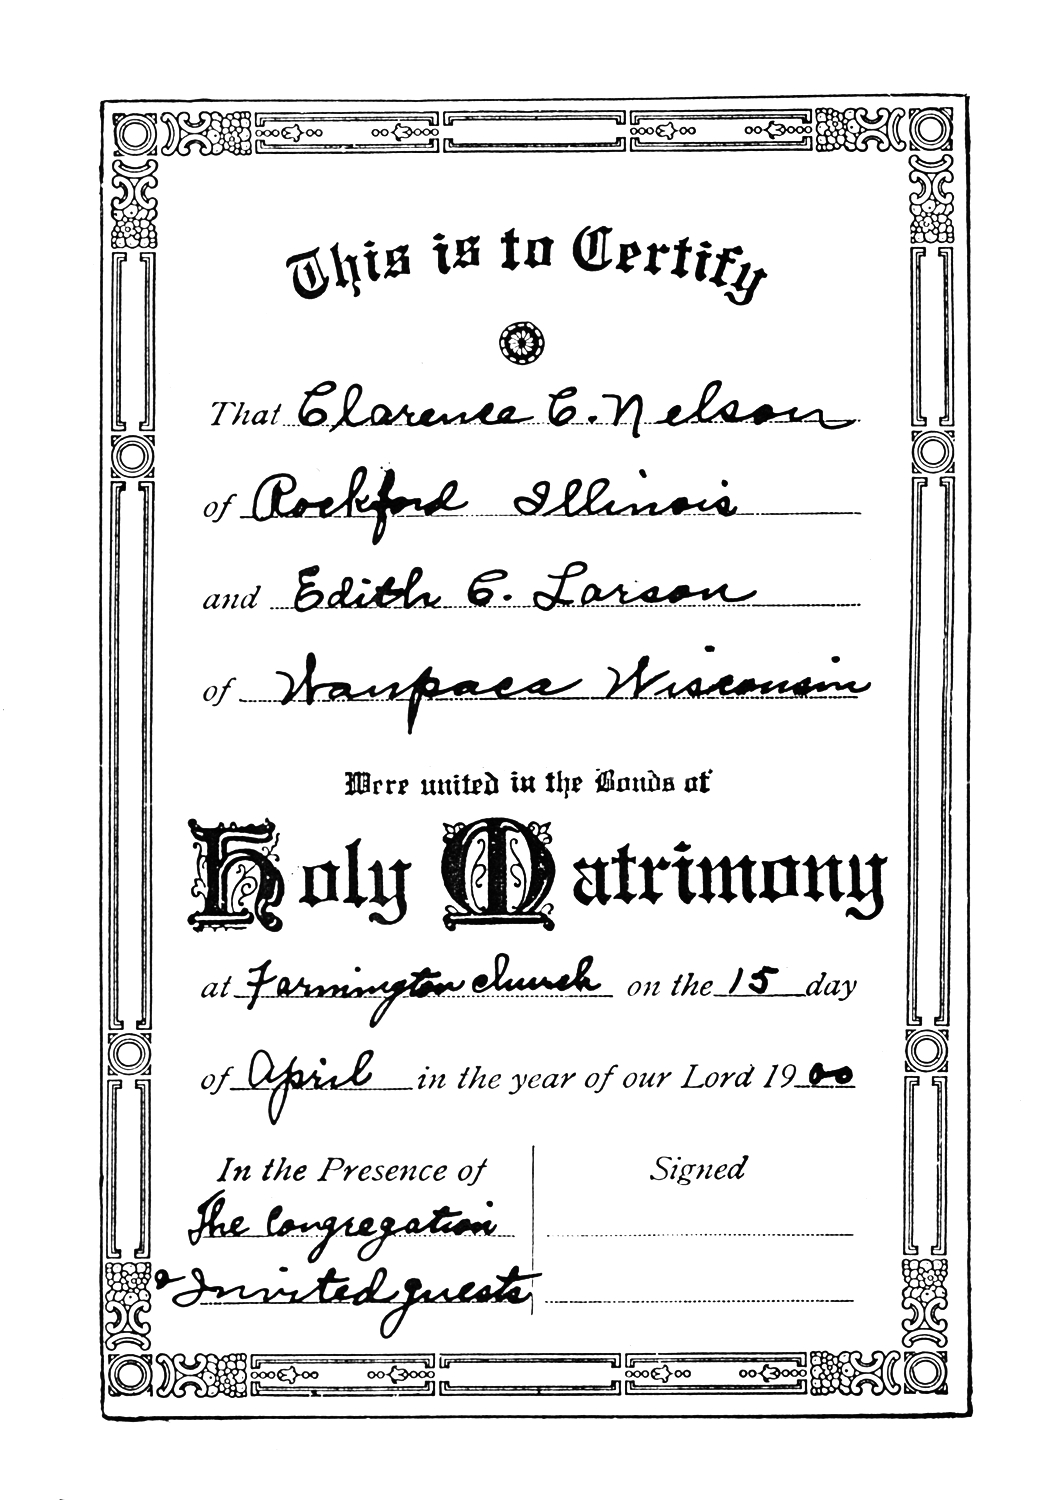 This is to Certify
That Clarence C. Nelson
of Rockford Illinois
and Edith C. Larson
of Waupaca Wisconsin
Were united in the Bonds of
Holy Matrimony
at Farmington church on the 15 day
of April in the year of our Lord 1900
In the Presence of
The Congregation
& Invited guests
Signed